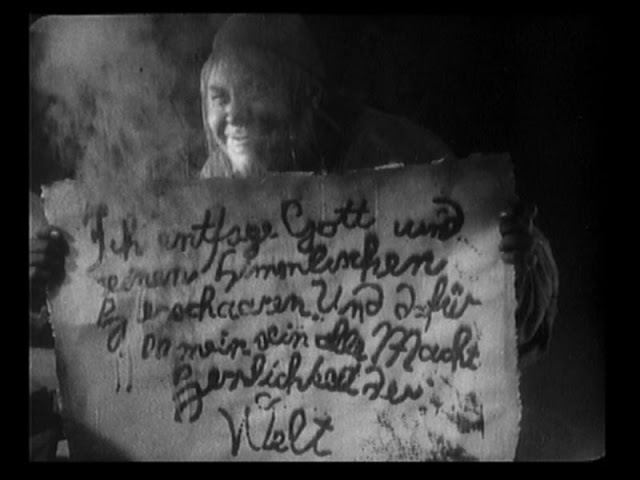 Ich entsage Gott und
seinen himmlischen
Heerschaaren. Und dafür
sei mein sein die Macht
Herrlichkeit der
Welt